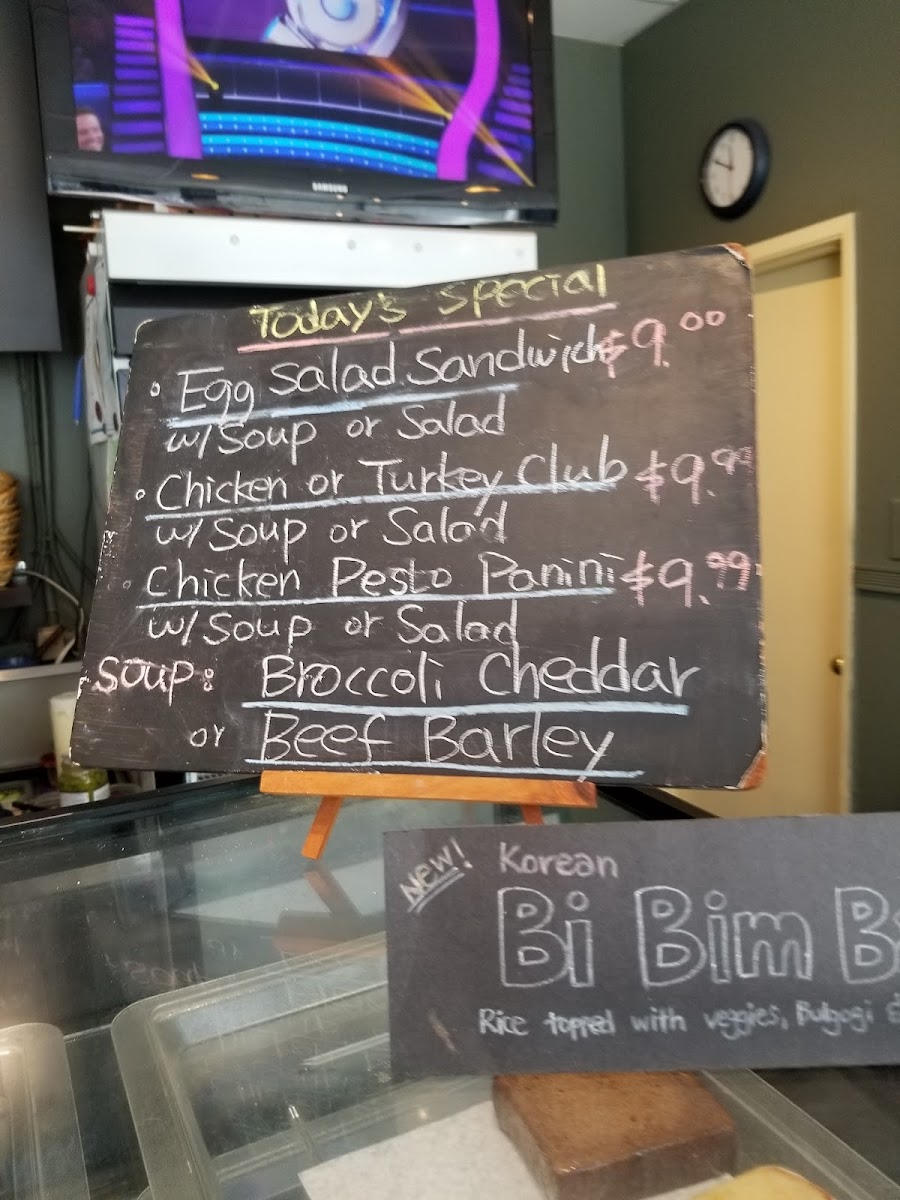 SAMSUNG
Today's Special
Egg Salad Sandwich $9.00
w/ Soup or Salad
Chicken or Turkey Club $9.99
w/ Soup or Salad
Chicken Pesto Panini $9.99
w/ Soup or Salad
Soup: Broccoli Cheddar
or Beef Barley
NEW! Korean
Bi Bim
Rice topped with veggies, Bulgogi &